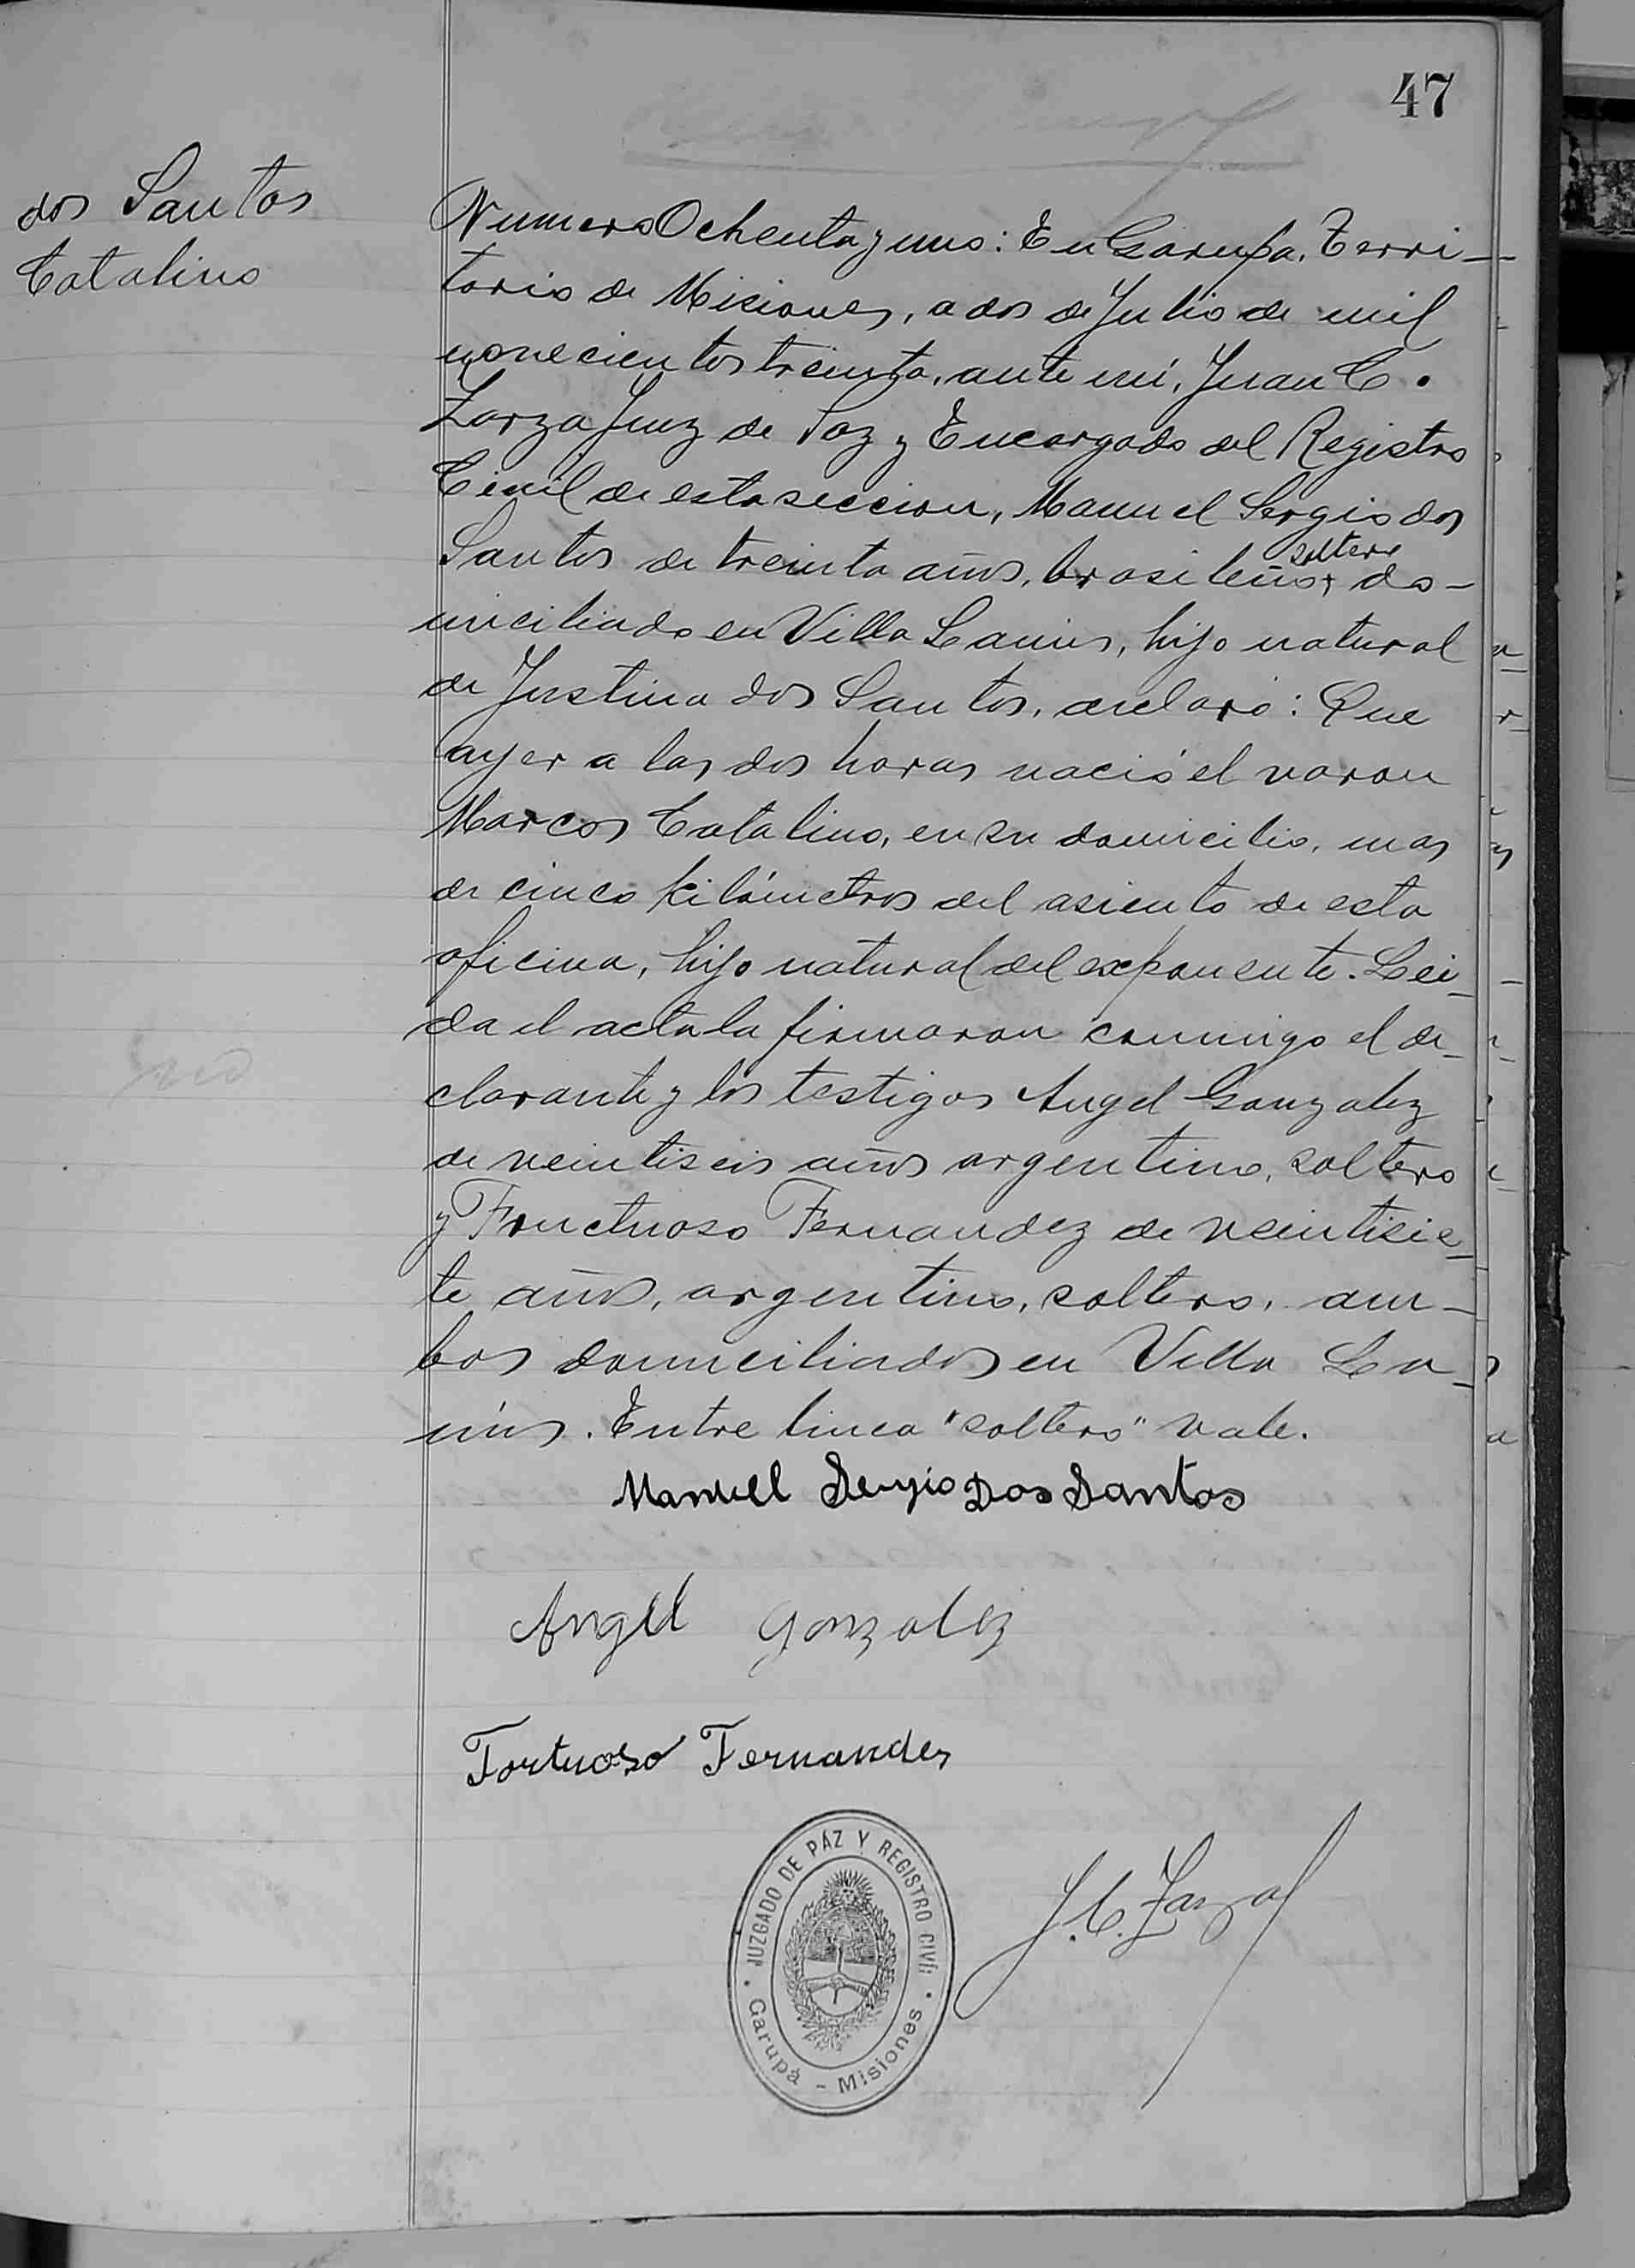 47
dos Santos
Catalino
Numero Ochenta y uno: En Garupa, Terri-
torio de Misiones, a dos de Julio de mil
novecientos treinta, ante mi, Juan C.
Zarza Juez de Paz y Encargado del Registro
Civil de esta seccion, Manuel Sergio dos
Santos de treinta años, brasileño, soltero do-
miciliado en Villa Lanus, hijo natural
de Justina dos Santos, declaró: Que
ayer a las dos horas nació el varon
Marcos Catalino, en su domicilio, mas
de cinco kilómetros del asiento de esta
oficina, hijo natural del exponente. Lei-
da el acta la firmaron conmigo el de-
clarante y los testigos Angel Gonzalez
de veintiseis años argentino, soltero
y Fructuoso Fernandez de veintisie-
te años, argentino, soltero, am-
bos domiciliados en Villa La-
nús. Entre linea "soltero" vale.
Manuel Sergio Dos Santos
Angel Gonzalez
Fortuoso Fernandes
JUZGADO DE PAZ Y REGISTRO CIVIL
Garupá - Misiones
J. C. Zarza